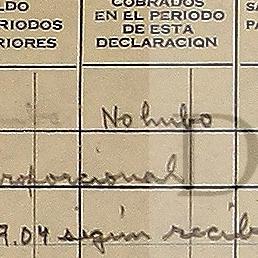 LDO COBRADOS SA
RIODOS EN EL PERIODO PA
RIORES DE ESTA
DECLARACION
No hubo
roporcional
9.04 según recib